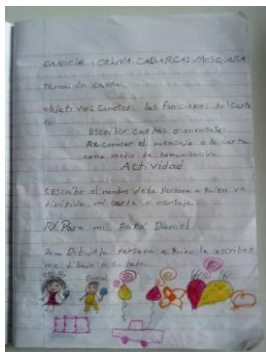 DANIELA CELINA CABARCAS MOSQUERA
tema: la carta
objetivos: Conocer las funciones de carta
Escribir cartas o mensaje
Reconocer el mensaje o la carta
como medio de comunicación
Actividad
1. Escribe el nombre de la Persona a Quien va
dirigido mi carta o mensaje
R/ Para mi PaPá Daniel
2. Dibuja la Persona a Quien le escribes